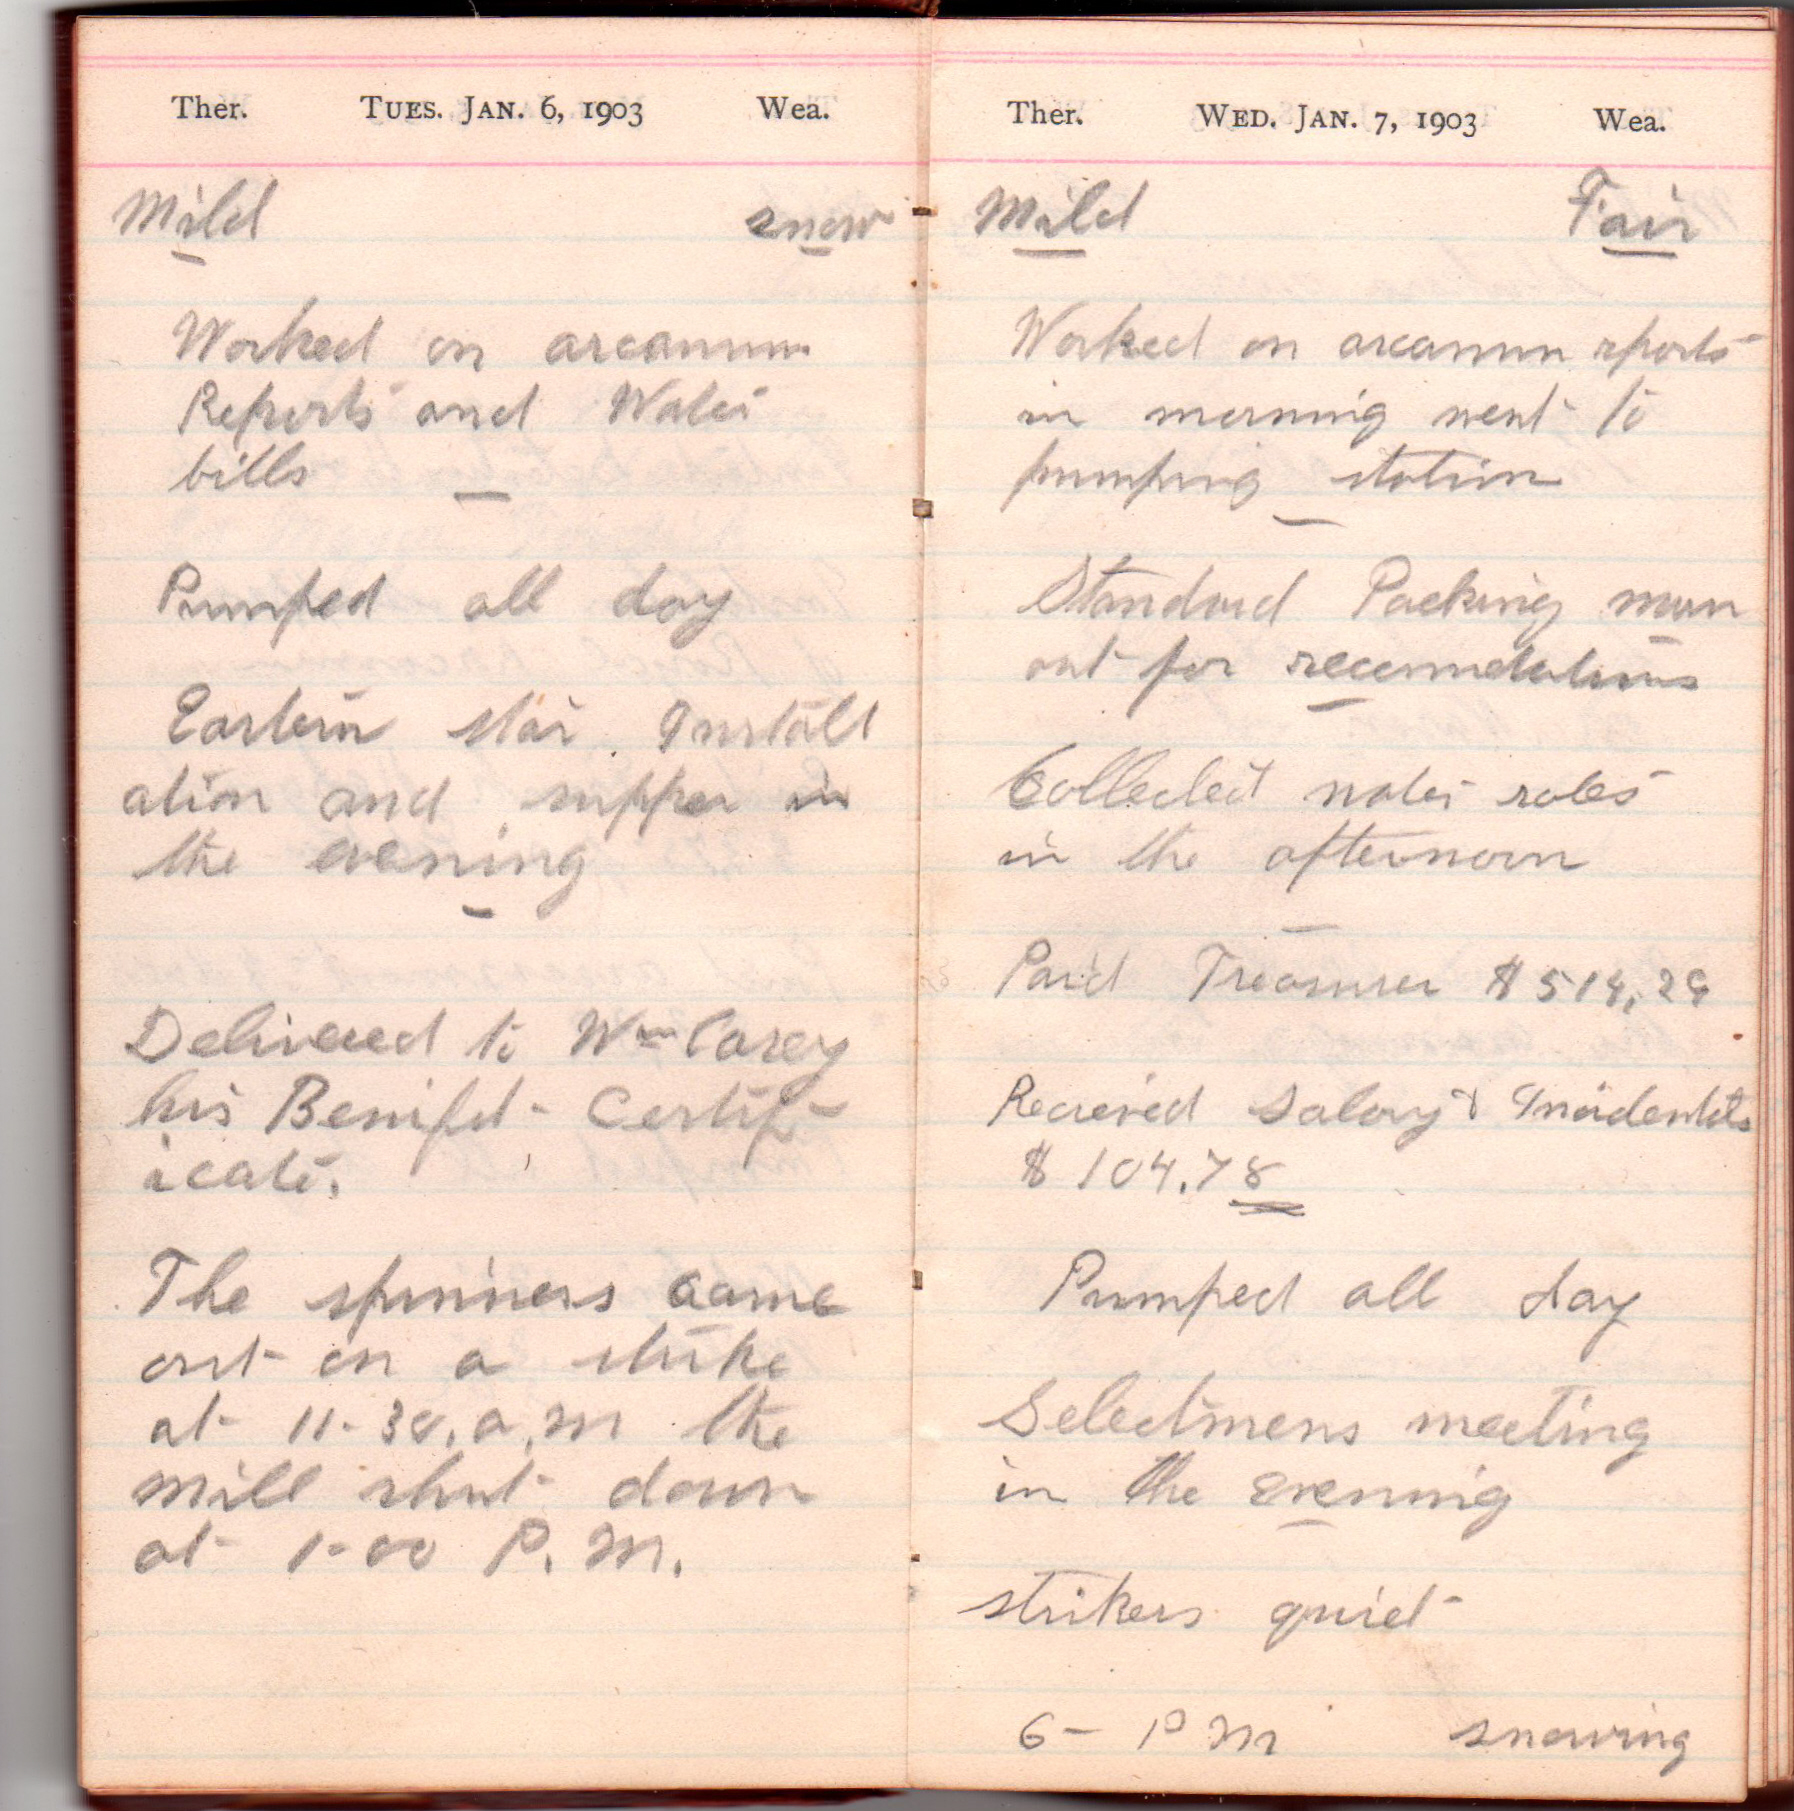 Ther. TUES. JAN. 6, 1903 Wea.
Mild snow
Worked on arcanum
Reports and Water
bills
Pumped all day
Eastern star Install
ation and supper in
the evening
Delivered to Wm Carey
his Benifit Certif-
icate.
The spinners came
out on a strike
at 11-30, a.m the
mill shut down
at 1-00 P.M.
Ther. WED. JAN. 7, 1903 Wea.
Mild Fair
Worked on arcanum rports
in morning went to
pumping station
Standard Packing man
out for
Collected water rates
in the afternoon
Paid Treasurer
Recieved Salary & Incidentals
$104.78
Pumped all day
Selectmens meeting
in the evening
strikers quiet
6- PM snowing